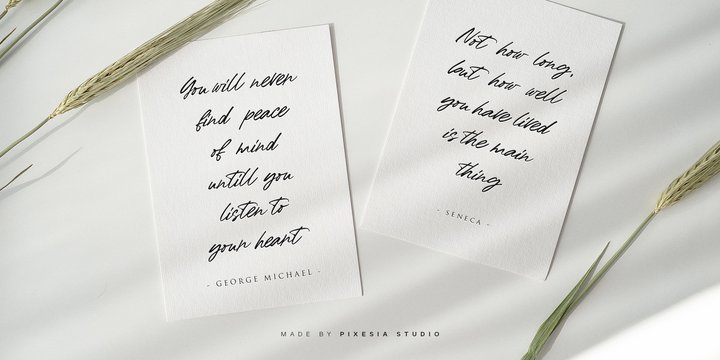 You will never
find peace
of mind
untill you
listen to
your heart
- GEORGE MICHAEL -
Not how long,
but how well
you have lived
is the main
thing
- SENECA -
MADE BY PIXESIA STUDIO